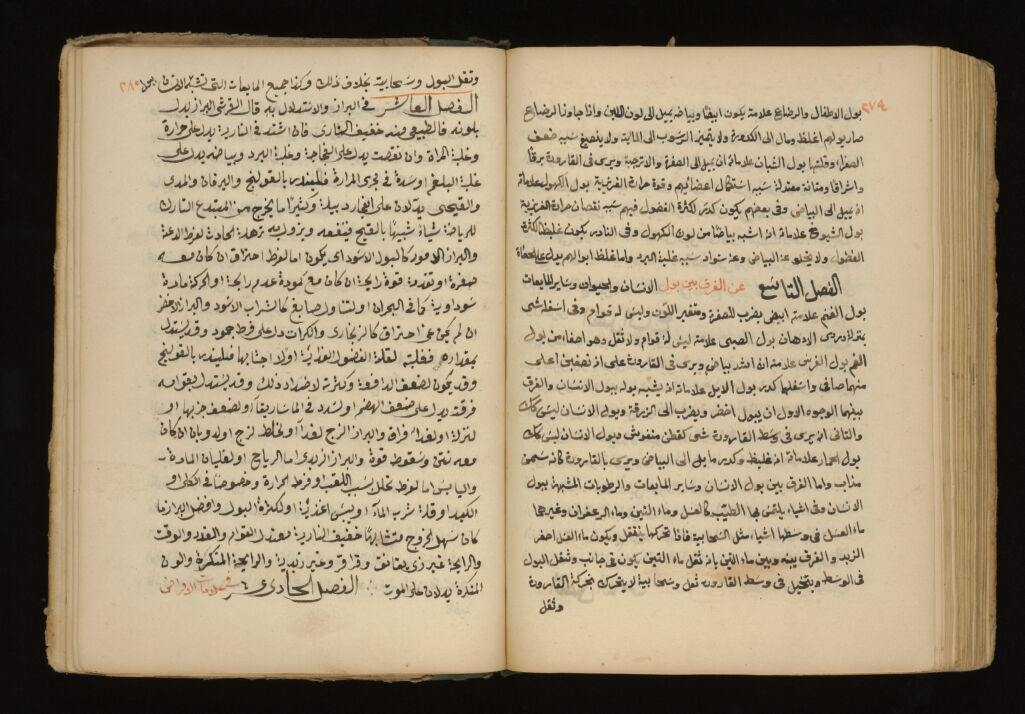 ٢٧٤
بول الاطفال والرضاع علامته يكون ابيضا وبياضه يميل الى لون اللبن واذا جاوز الرضاع
صار بولهم اغلظ ومال الى الكدورة ولا يتميز الرسوب الى المائية ولا ينصبغ سببه ضعف
الصفراء وقلتها بول الشبان علامته ان يميل الى الصفرة والاترجية ويرى فى القارورة برقا
واشراقا ومتانة معتدلة سببه استكمال اعضائهم وقوة حرارة الغريزية بول الكهول علامته
انه يميل الى البياض وفى بعضهم يكون كدر لكثرة الفضول فيهم سببه نقصان حرارة الغريزية
بول الشيوخ علامته انه اشبه بياضا من لون الكهول وفى النادر يكون غليظا لكثرة
الفضول ولا يخلو عن البياض وعن سواد سببه غلبة البرد واما غلظ ابوالهم يدل على الحصاة
الفصل التاسع عن الفرق بين بول الانسان والحيوان وساير المايعات
بول الغنم علامته ابيض يضرب للصفرة ومتغير اللون وليس له قوام وفى اسفله شى
بول الصبى علامته ليس له قوام ولا ثقل وهو اصفا من بول
الغنم بول الفرس علامته انه اشد بياض ويرى فى القارورة على نصفين اعلى
منهما صافى واسفلهما كدر بول الابل علامته انه يشبه بوله ببول الانسان والفرق
بينهما الوجوه الاول ان يبول اخضر ويضرب الى الزرقة وبول الانسان ليس كذلك
والثانى انه يرى فى وسط القارورة شى كقطن منفوش وبول الانسان ليس كذلك
بول الحمار علامته انه غليظ وكدر مايل الى البياض ويرى بالقارورة كانه سمن
مذاب واما الفرق بين بول الانسان وساير المايعات والرطوبات المشبهة ببول
الانسان وفى اشياء يلتمس بها الطبيب كالعسل وماء التين وماء الزعفران وغيرها
ماء العسل فى وسطها اشياء مثل السحابية فاذا تحركها ويكون ماء العسل اصفر
الزبد والفرق بينه وبين ماء التين بانه ثقل ماء التين يكون فى جانب وثقل البول
فى الوسط ويتخيل فى وسط القارورة ثقل وسحابية لا يتحرك بحركة القارورة
وثقل
٢٨٠
وثقل البول وسحابية بخلاف ذلك وكذا جميع المايعات التى تشبه الانسان
الفصل العاشر فى البراز والاستدلال به قال القرشى البراز يدل
بلونه فالطبيعى منه خفيف النارى فان اشتد فى النارية يدل على حرارة
وغلبة المرة وان نقصت يدل على الفجاجة وغلبة البرد وبياضه يدل على
غلبة البلغم او سدة فى مجرى المرارة فلينذر بالقولنج واليرقان والمدى
والقيحى يدلان على انفجار دبيلة وكثيرا ما يخرج من التارك
للرياضة شيأ شبيها بالقيح فينفعه ويزول به ترهله الحادث لفرط الدعة
والبراز الاسود كالبول الاسود اى يكون اما لفرط احتراق ان كان معه
صفرة او تقدمه قوة رايحة ان كان مع كمودة عدم رايحة او لحركة مادة
سوداوية كما فى البحران او لتناول صابغ كالشراب الاسود والبراز الاخضر
ان لم يكن عن احتراق كالزنجارى والكراث دل على فرط جمود وقد يستدل
بمقداره فقليله لقلة الفضول الغذائية او لاحتباسها فلينذر بالقولنج
وقد يكون لضعف الدافعة وكثرته لاضداد ذلك وقد يستدل بقوامه
فرقته يدل على ضعف الهضم او لسدد فى الماساريقا او لضعف جذبها او
لنزلة او لغذاء مزلق والبراز اللزج لغذاء او لخلط لزج او لذوبان ان كان
معه نتن وسقوط قوة والبراز الزبدى اما الرياح او لغليان المادة
واليابس اما لفرط تحلل بسبب التعب او فرط حرارة وخصوصا فى الكلى او
الكبد او قلة شرب الماء او يبس اغذية او لكثرة البول وافضل البراز ما
كان سهل الخروج متشابها خفيف النارية معتدل القوام والقدر والوقت
والرائحة غير ذى بقابق وقراقر وغير زبدية والرايحة المنكرة واللون
المنكر يدلان على الموت الفصل الحادى عشر فى علامات الامراض